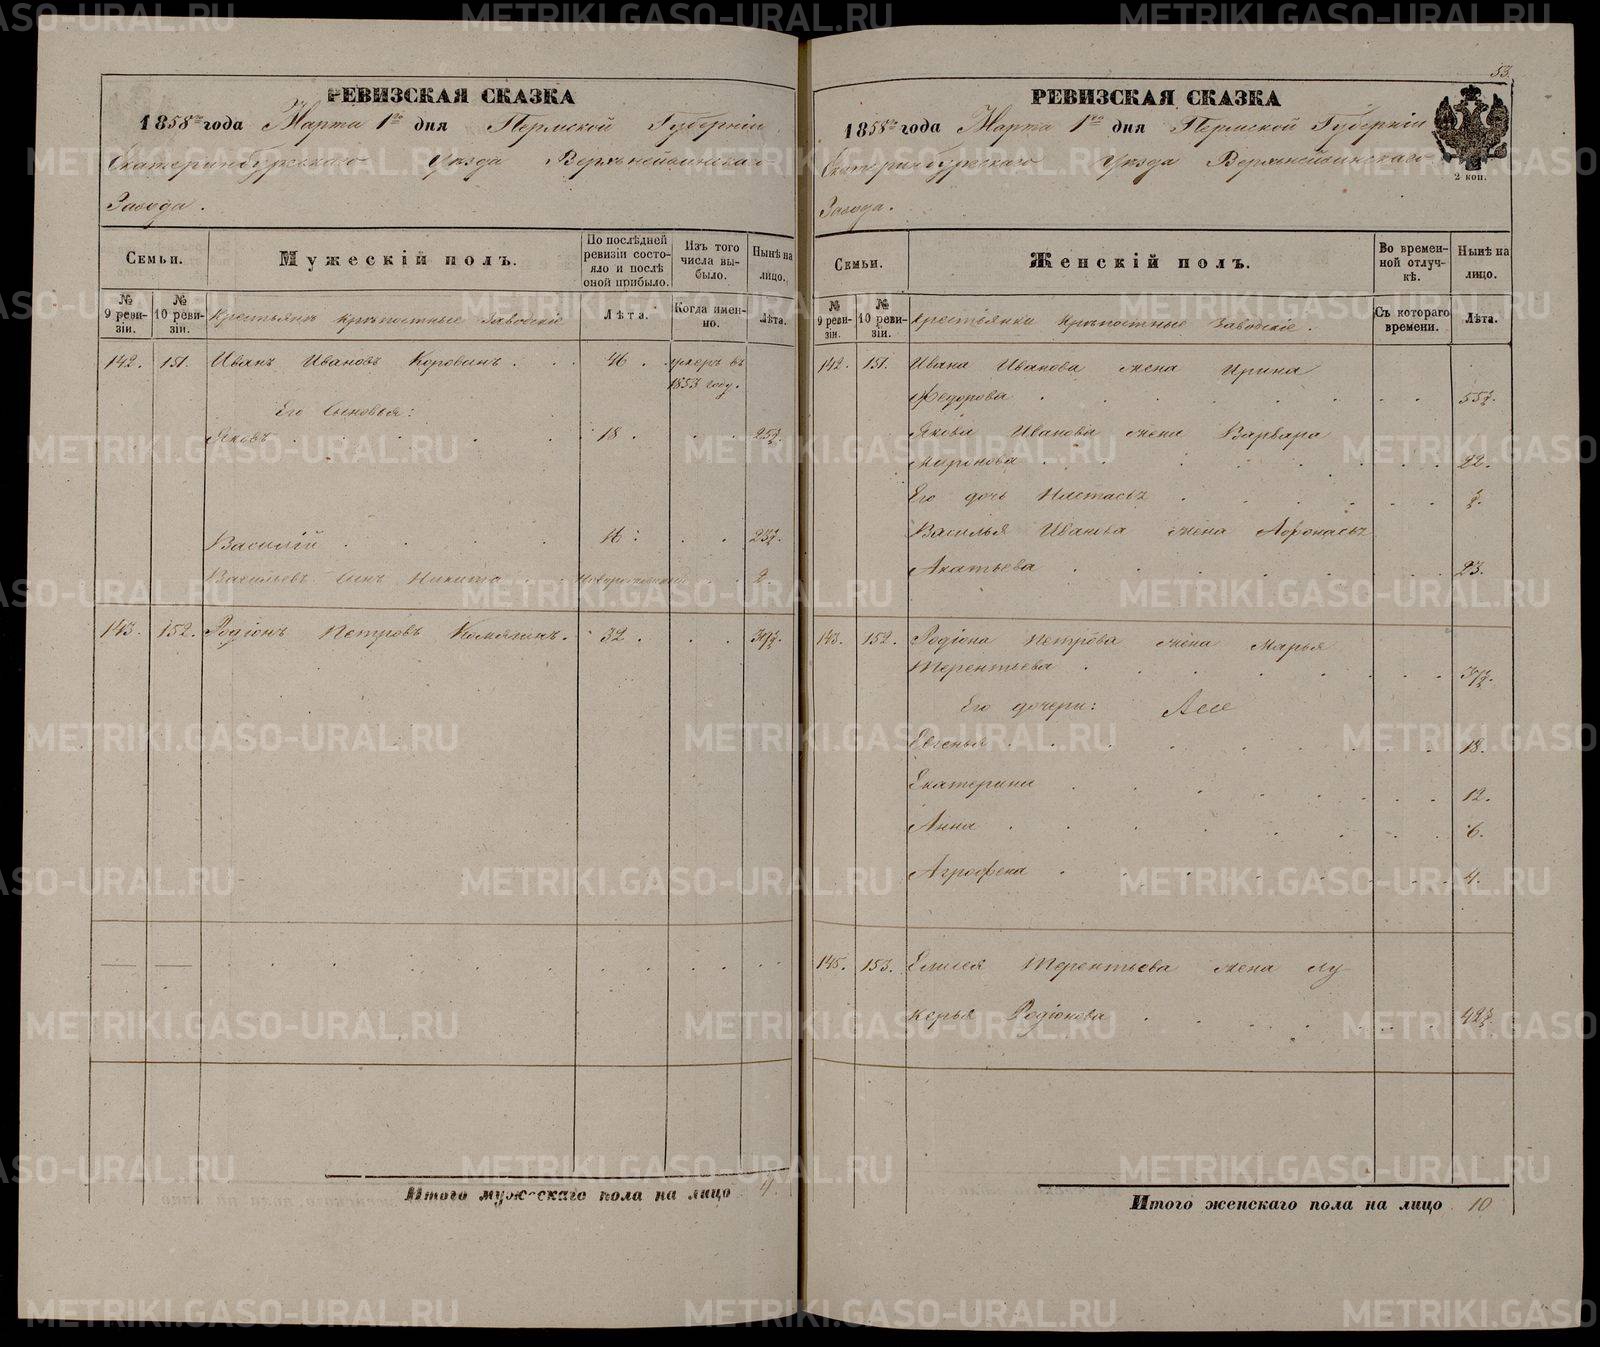 РЕВИЗСКАЯ СКАЗКА
1858го года Марта 1го дня Пермской Губерніи
Екатеринбургскаго Уезда Верхнейвинскаго
Завода.
Семьи. Мужескій полъ. По послѣдней ревизіи состояло и послѣ оной прибыло. Изъ того числа выбыло. Нынѣ на лицо.
№ 9 ревизіи. № 10 ревизіи. Крестьяне крѣпостные Заводскіе Лѣта. Когда именно. Лѣта.
142. 151. Иванъ Ивановъ Коровинъ. 46. умеръ въ
1853 году.
Его Сыновья:
Яковъ 18. 25½.
Василій 16. 23½.
Васильевъ Сынъ Никита Новорожденный 2.
143. 152. Родіонъ Петровъ Комягинъ. 32. 39½.
Итого мужескаго пола на лицо 4.
53.
РЕВИЗСКАЯ СКАЗКА
1858го года Марта 1го дня Пермской Губерніи
Екатеринбургскаго Уезда Верхнейвинскаго
2 коп.
Завода.
Семьи. Женскій полъ. Во временной отлучкѣ. Нынѣ на лицо.
№ 9 ревизіи. № 10 ревизіи. Крестьянки Крѣпостные Заводскіе. Съ котораго времени. Лѣта.
142. 151. Ивана Иванова жена Ирина
Федорова 55½.
Якова Иванова жена Варвара
Миронова 22.
Его дочь Настасья ½.
Василья Иванова жена Афонасья
Акатьева 23.
143. 152. Родіона Петрова жена Марья
Терентьева 39½.
Его дочери:
Евгенья 18.
Екатерина 12.
Анна 6.
Агрофена 4.
145. 153. Елисея Терентьева жена Лу-
керья Родіонова 42½
Итого женскаго пола на лицо 10
METRIKI.GASO-URAL.RU